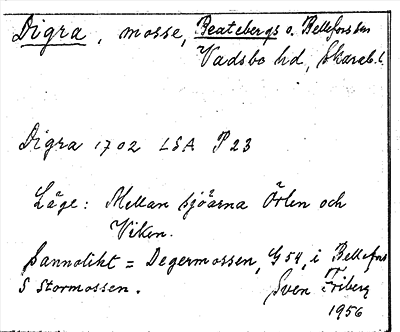 Digra, mosse, Beatebergs o. Bellefors sn
Vadsbo hd, Skarab. l.
Digra 1702 LSA P23
Läge: Mellan sjöarna Örlen och
Viken.
Sannolikt = Degermossen, G54, i Bellefors
S Stormossen.
Sven Friberg
1956